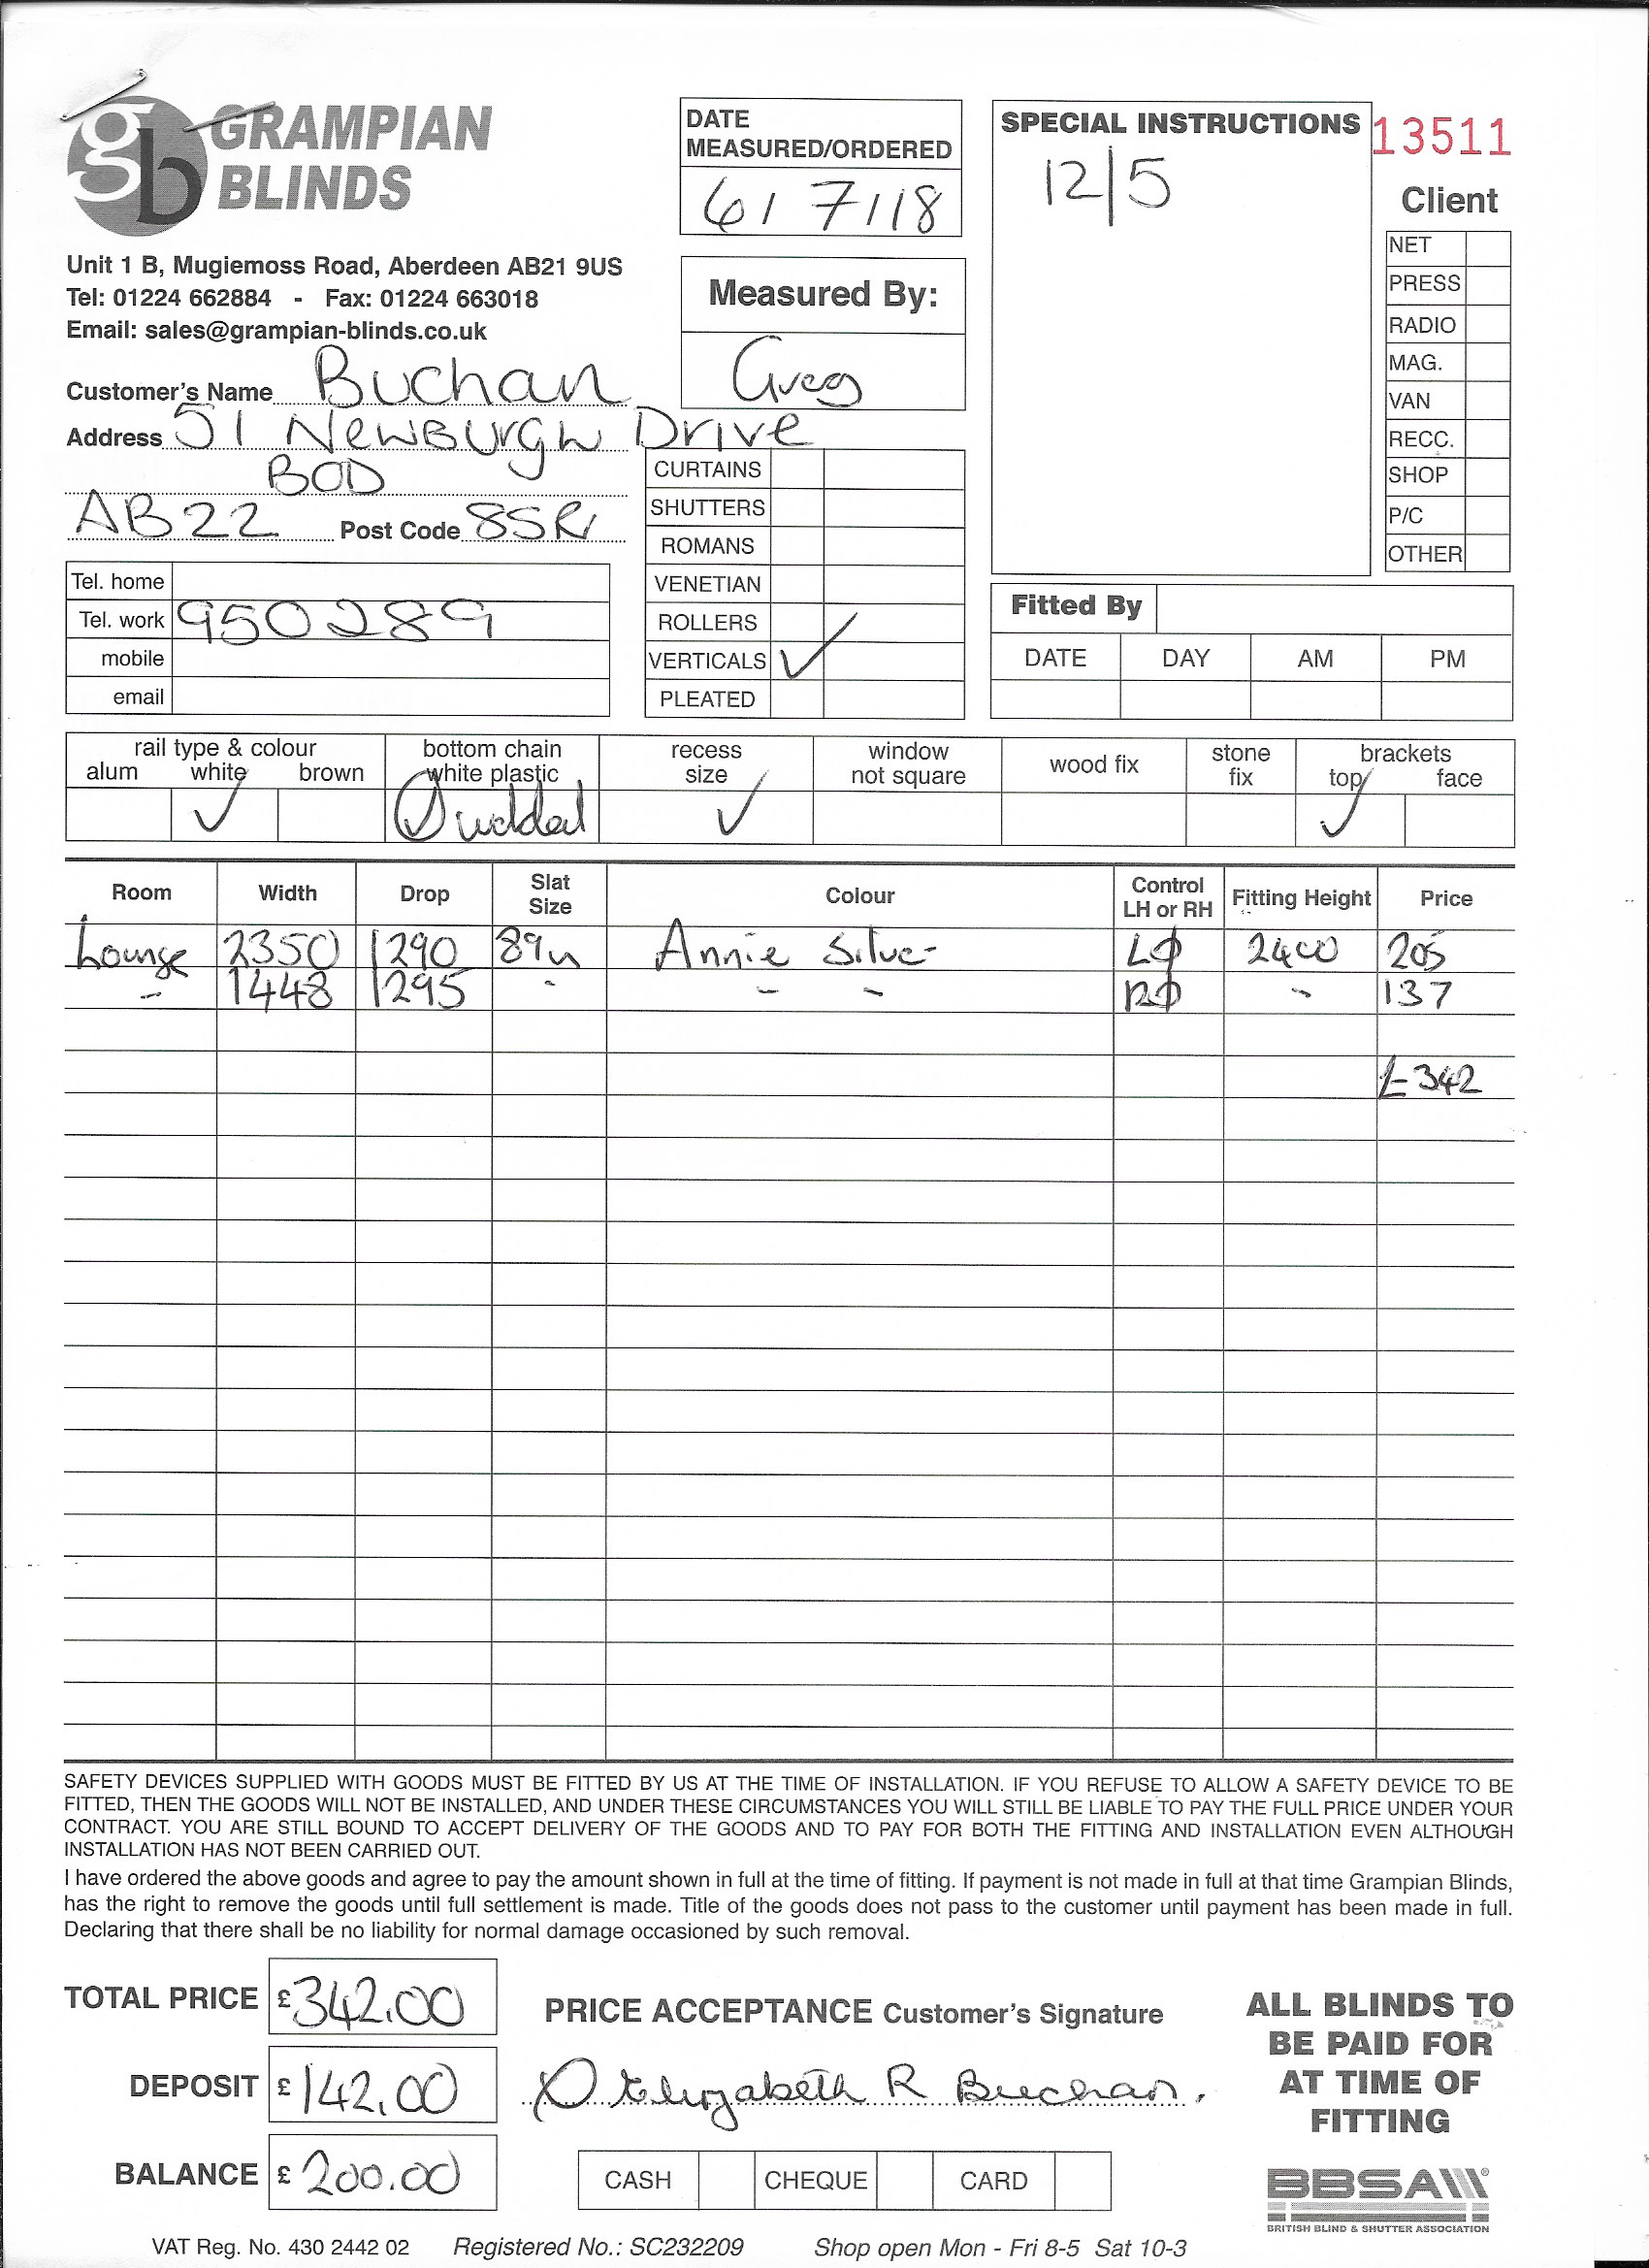 gb GRAMPIAN BLINDS
Unit 1 B, Mugiemoss Road, Aberdeen AB21 9US
Tel: 01224 662884 - Fax: 01224 663018
Email: sales@grampian-blinds.co.uk
Customer's Name Buchan
Address 51 Newburgh Drive
BOD
AB22 Post Code 8SR
DATE MEASURED/ORDERED
6/7/18
Measured By:
Greg
SPECIAL INSTRUCTIONS
12/5
13511
Client
NET
PRESS
RADIO
MAG.
VAN
RECC.
SHOP
P/C
OTHER
Tel. home
Tel. work 950289
mobile
email
CURTAINS
SHUTTERS
ROMANS
VENETIAN
ROLLERS
VERTICALS ✓
PLEATED
Fitted By
DATE DAY AM PM
rail type & colour
alum white brown
✓
bottom chain
white plastic
welded
recess
size
✓
window
not square
wood fix
stone
fix
brackets
top face
✓
Room Width Drop Slat Size Colour Control LH or RH Fitting Height Price
Lounge 2350 1290 89 Annie Silver 2400 205
1448 1295 137
£342
SAFETY DEVICES SUPPLIED WITH GOODS MUST BE FITTED BY US AT THE TIME OF INSTALLATION. IF YOU REFUSE TO ALLOW A SAFETY DEVICE TO BE
FITTED, THEN THE GOODS WILL NOT BE INSTALLED, AND UNDER THESE CIRCUMSTANCES YOU WILL STILL BE LIABLE TO PAY THE FULL PRICE UNDER YOUR
CONTRACT. YOU ARE STILL BOUND TO ACCEPT DELIVERY OF THE GOODS AND TO PAY FOR BOTH THE FITTING AND INSTALLATION EVEN ALTHOUGH
INSTALLATION HAS NOT BEEN CARRIED OUT.
I have ordered the above goods and agree to pay the amount shown in full at the time of fitting. If payment is not made in full at that time Grampian Blinds,
has the right to remove the goods until full settlement is made. Title of the goods does not pass to the customer until payment has been made in full.
Declaring that there shall be no liability for normal damage occasioned by such removal.
TOTAL PRICE £342.00
DEPOSIT £142.00
BALANCE £200.00
PRICE ACCEPTANCE Customer's Signature
Elizabeth R Buchan.
CASH CHEQUE CARD
ALL BLINDS TO
BE PAID FOR
AT TIME OF
FITTING
BBSA
BRITISH BLIND & SHUTTER ASSOCIATION
VAT Reg. No. 430 2442 02 Registered No.: SC232209 Shop open Mon - Fri 8-5 Sat 10-3